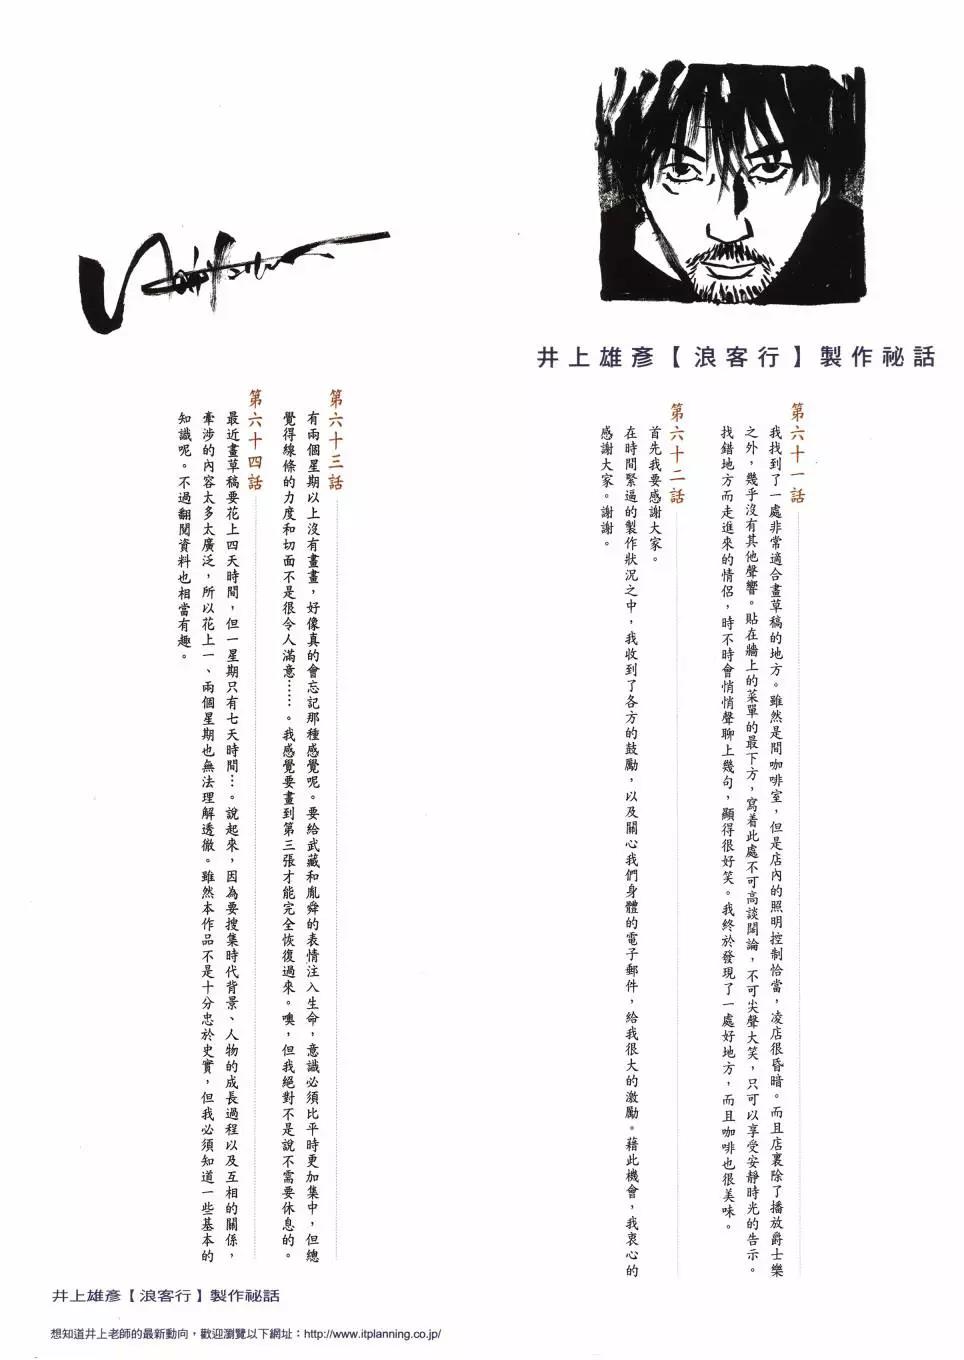 井上雄彥【浪客行】製作祕話
第六十一話
我找到了一處非常適合畫草稿的地方。雖然是間咖啡室，但是店內的照明控制恰當，凌店很昏暗。而且店裏除了播放爵士樂
之外，幾乎沒有其他聲響。貼在牆上的菜單的最下方，寫着此處不可高談闊論，不可尖聲大笑，只可以享受安靜時光的告示。
找錯地方而走進來的情侶，時不時會悄悄聲聊上幾句，顯得很好笑。我終於發現了一處好地方，而且咖啡也很美味。
第六十二話
首先我要感謝大家。
在時間緊逼的製作狀況之中，我收到了各方的鼓勵，以及關心我們身體的電子郵件，給我很大的激勵。藉此機會，我衷心的
感謝大家。謝謝。
第六十三話
有兩個星期以上沒有畫畫，好像真的會忘記那種感覺呢。要給武藏和胤舜的表情注入生命，意識必須比平時更加集中，但總
覺得線條的力度和切面不是很令人滿意……。我感覺要畫到第三張才能完全恢復過來。噢，但我絕對不是說不需要休息的。
第六十四話
最近畫草稿要花上四天時間，但一星期只有七天時間…。說起來，因為要搜集時代背景、人物的成長過程以及互相的關係，
牽涉的內容太多太廣泛，所以花上一、兩個星期也無法理解透徹。雖然本作品不是十分忠於史實，但我必須知道一些基本的
知識呢。不過翻閱資料也相當有趣。
井上雄彥【浪客行】製作祕話
想知道井上老師的最新動向，歡迎瀏覽以下網址：http://www.itplanning.co.jp/